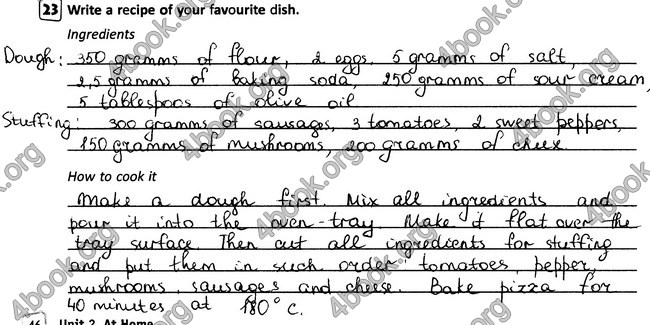 23 Write a recipe of your favourite dish.
Ingredients
Dough: 350 gramms of flour, 2 eggs, 5 gramms of salt,
2,5 gramms of baking soda, 250 gramms of sour cream,
5 tablespoos of olive oil
Stuffing: 300 gramms of sausages, 3 tomatoes, 2 sweet peppers,
150 gramms of mushrooms, 200 gramms of cheese.
How to cook it
Make a dough first. Mix all ingredients and
pour it into the oven-tray. Make it flat over the
tray surface. Then cut all ingredients for stuffing
and put them in such order: tomatoes, pepper,
mushrooms, sausages and cheese. Bake pizza for
40 minutes at 180°C.
46 Unit 2. At Home
4book.org